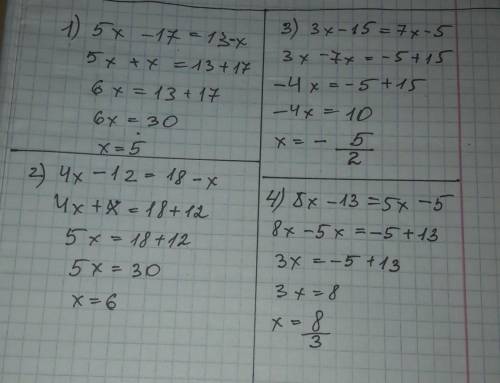 1) 5x - 17 = 13 - x
5x + x = 13 + 17
6x = 13 + 17
6x = 30
x = 5
2) 4x - 12 = 18 - x
4x + x = 18 + 12
5x = 18 + 12
5x = 30
x = 6
3) 3x - 15 = 7x - 5
3x - 7x = -5 + 15
-4x = -5 + 15
-4x = 10
x = - 5/2
4) 8x - 13 = 5x - 5
8x - 5x = -5 + 13
3x = -5 + 13
3x = 8
x = 8/3